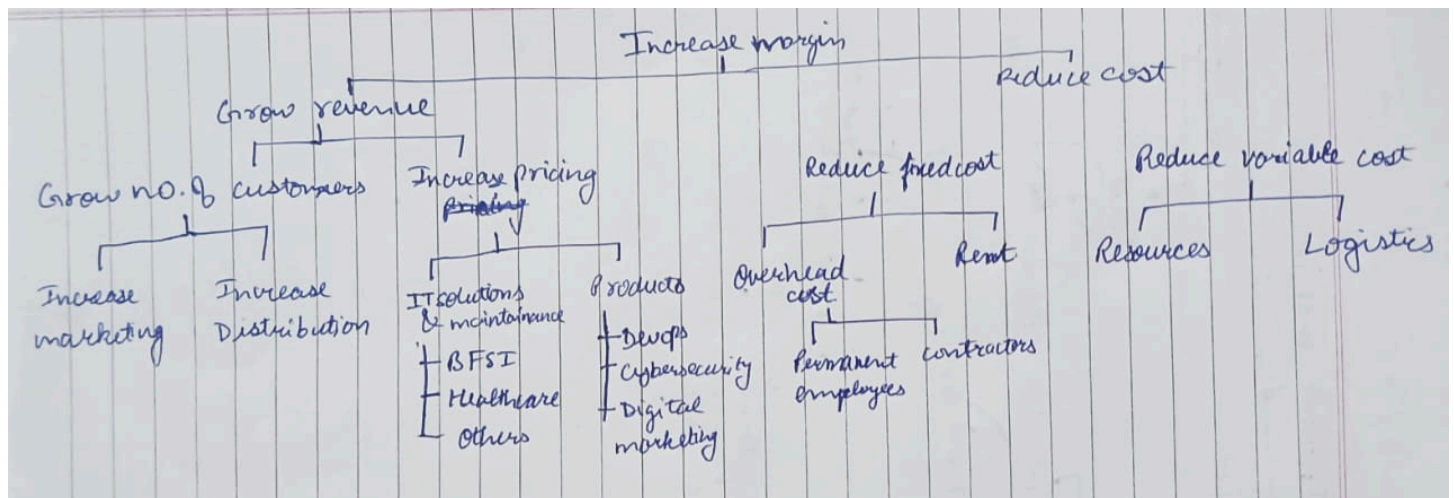 Increase margin
Grow revenue
Reduce cost
Grow no. of customers
Increase pricing
Reduce fixed cost
Reduce variable cost
Increase
marketing
Increase
Distribution
IT solutions
& maintainance
BFSI
Healthcare
Others
Products
Devops
Cybersecurity
Digital
marketing
Overhead
cost
Rent
Permanent
employees
contractors
Resources
Logistics